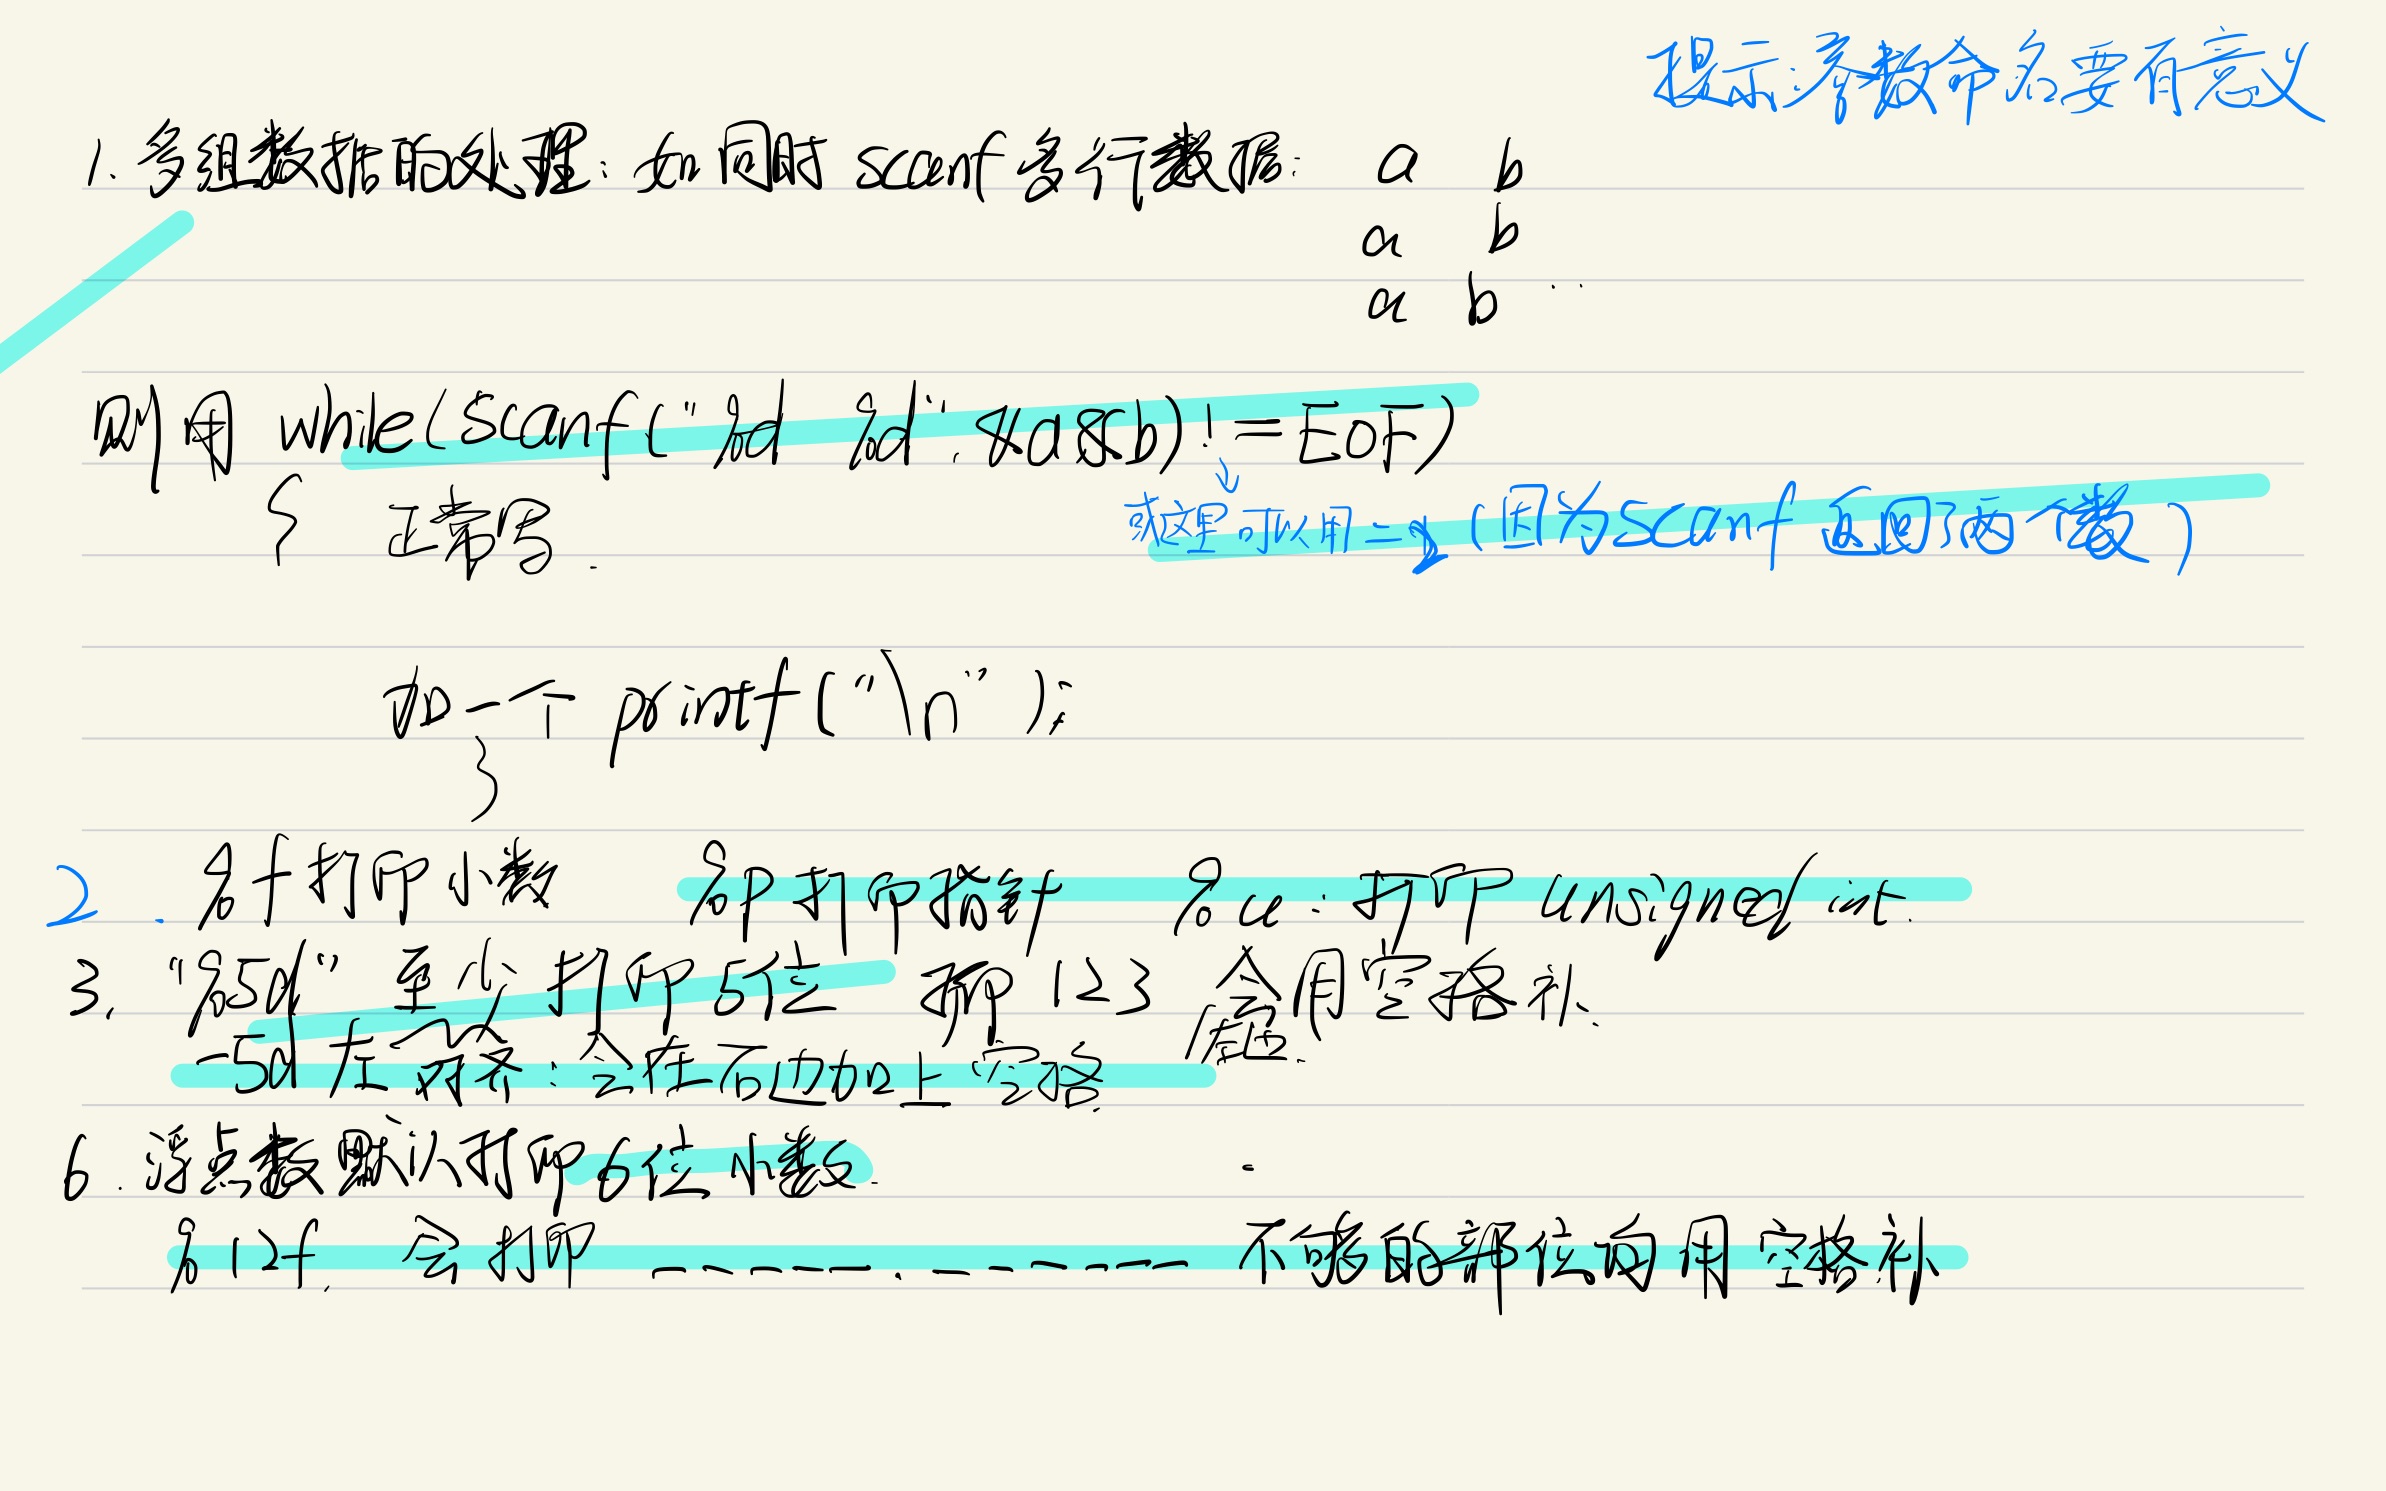 提示:参数命名要有意义
1.多组数据的处理:如同时 scanf 多行数据: a b
a b
a b ..
则用 while(scanf("%d %d",&a&b)!=EOF)
{ 正常写.
或这里可以用==2(因为scanf返回了两个数)
加一个 printf("\n");
}
2. %f打印小数 %p打印指针 %u:打印 unsigned int.
3. "%5d" 至少打印5位 打印 123 会用空格补.
-5d 左对齐:会在右边加上空格
6.浮点数默认打印6位小数.
%12f. 会打印 _ _ _ _ _ . _ _ _ _ _ _ 不够的部位向用空格补